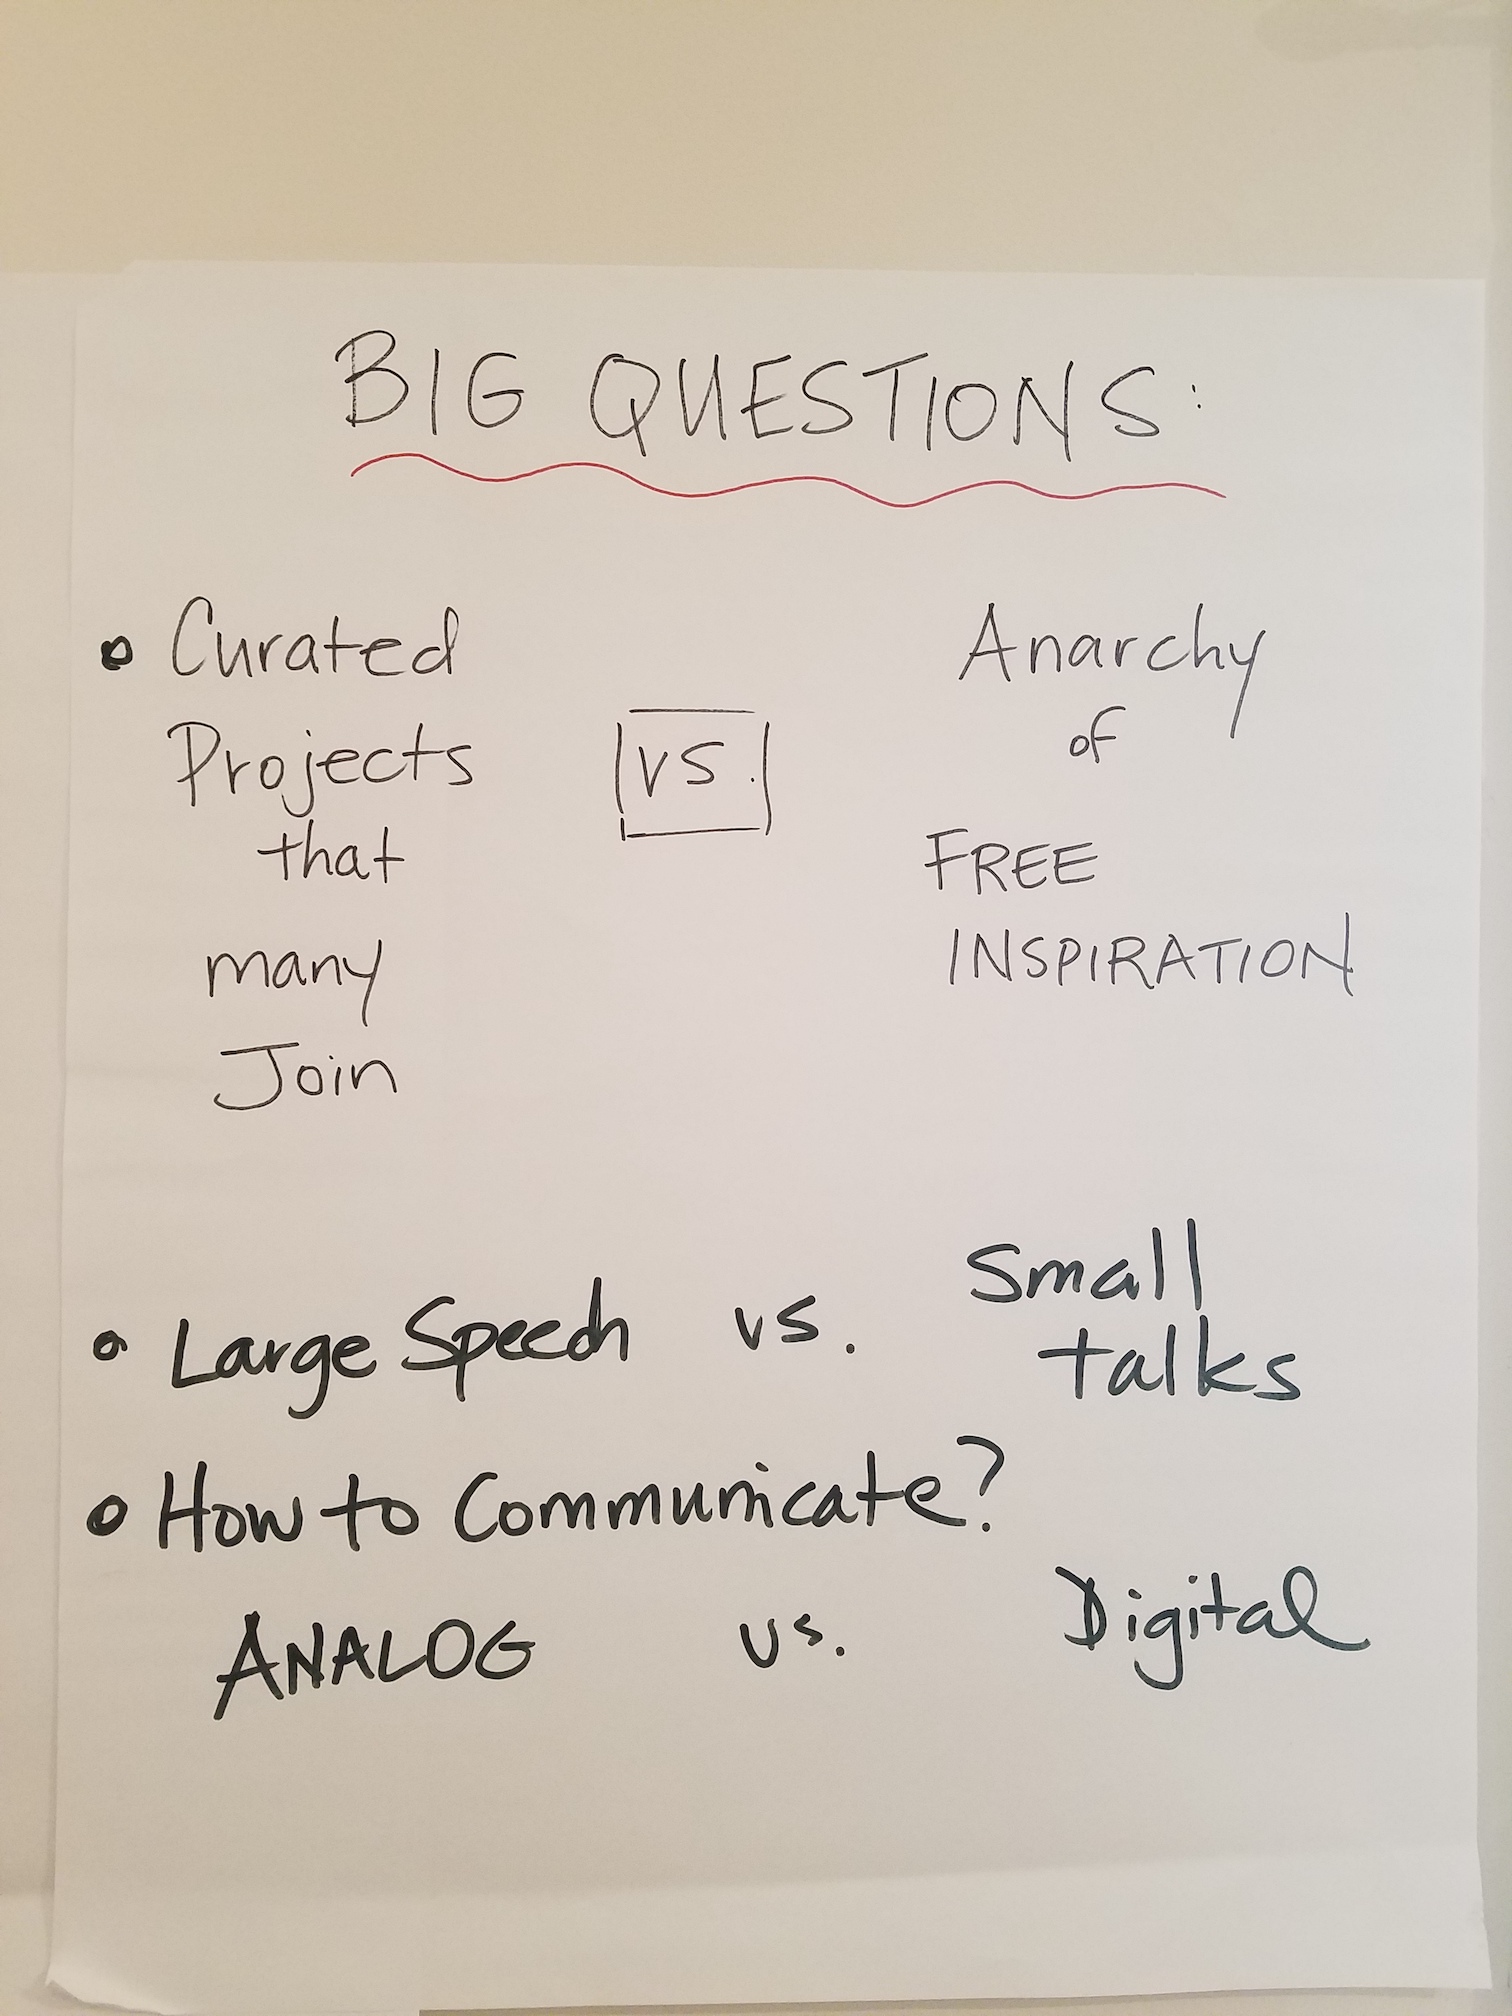 BIG QUESTIONS:
• Curated
Projects
that
many
Join
vs.
Anarchy
of
FREE
INSPIRATION
• Large Speech vs. Small
talks
• How to Communicate?
ANALOG vs. Digital